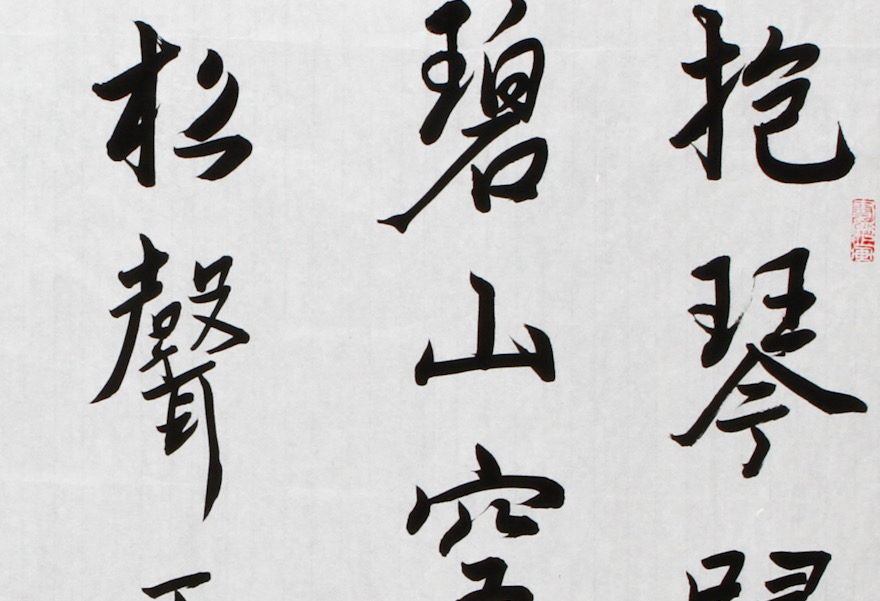 抱琴
碧山空
松聲